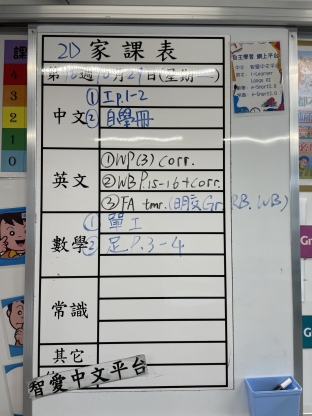 2D 家課表
月29日(星期一)
中文 ① I p.1-2
② 自學冊
英文 ① WP(3) corr.
② WB P.15-16 + corr.
③ FA tmr. (明交Gr RB. WB)
數學 ① 單 I
② 足 P.3-4
常識
其它
智愛中文平台
課
4
3
2
1
0
自主學習 網上平台